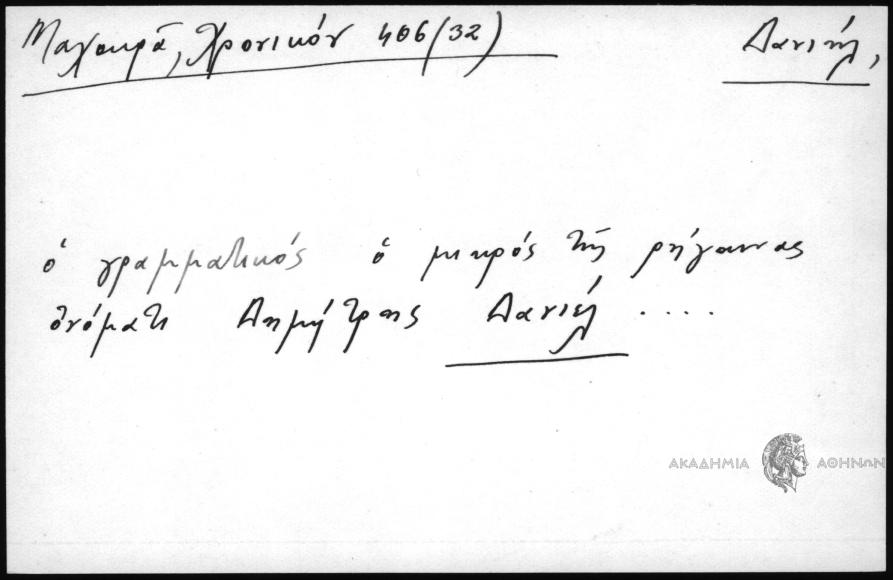 Μαχαιρᾶ, Χρονικόν 406 (32) Δανιήλ,
ὁ γραμματικός ὁ μικρός τῆς ρήγαινας
ὀνόματι Δημήτρης Δανιέλ ....
ΑΚΑΔΗΜΙΑ ΑΘΗΝΩΝ